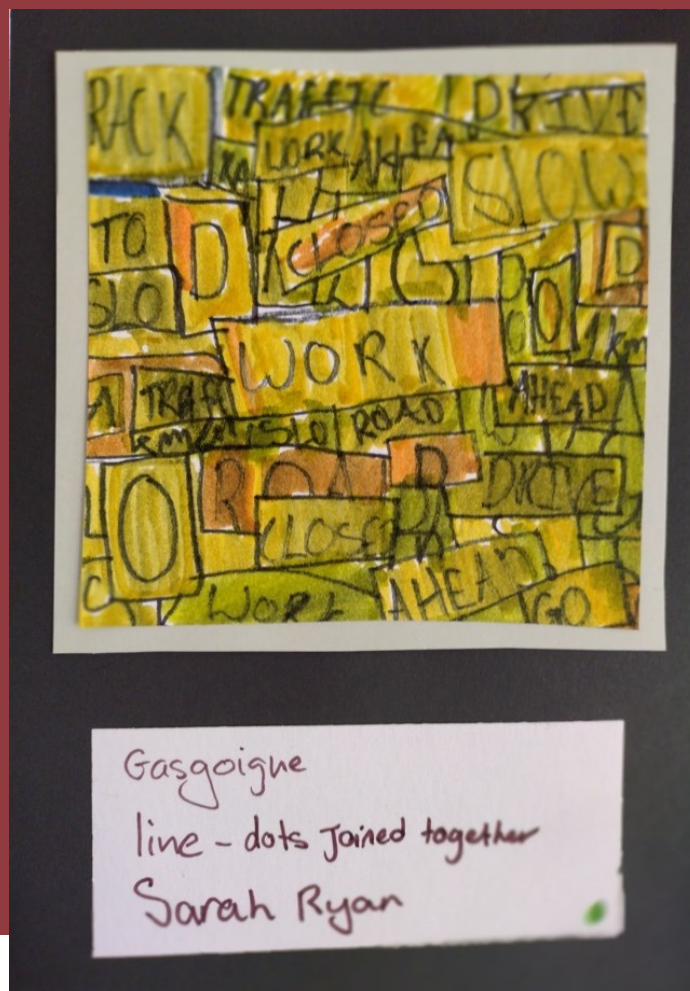 RACK TRAFFIC DRIVE
WORK AHEA
SLOW
TO D CLOSED
SLO O D
WORK 1km
TRAF ROAD AHEAD
SLO
O ROAD DRIVE
CLOSED
WORK AHEAD GO
Gasgoigne
line - dots Joined together
Sarah Ryan